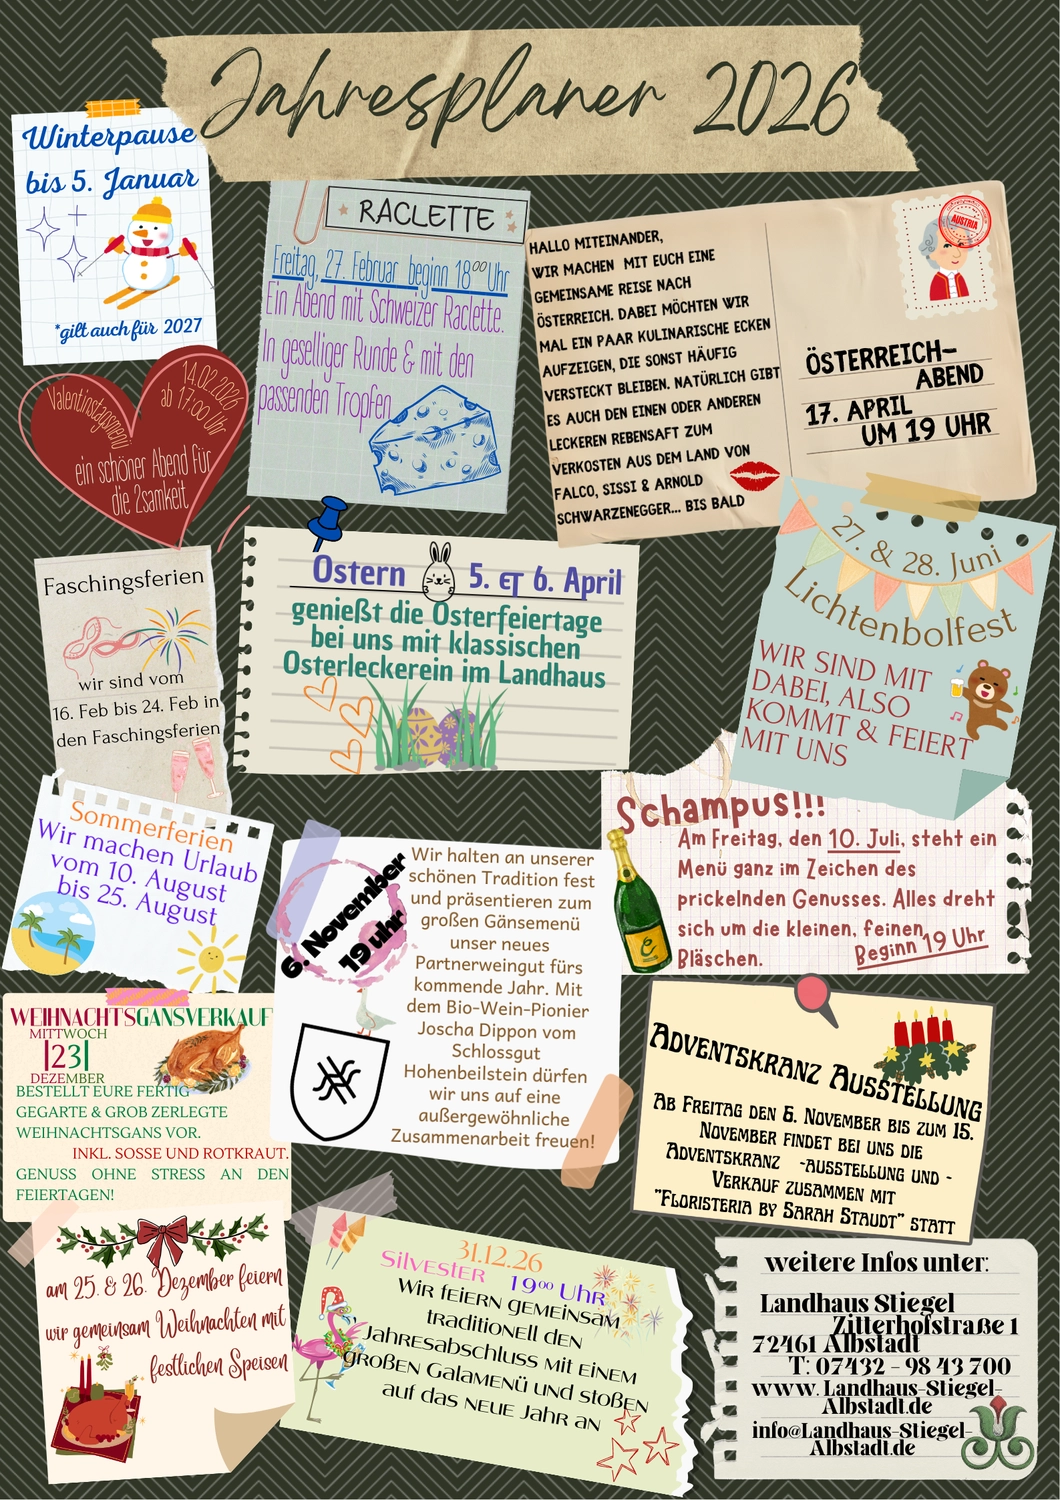 Jahresplaner 2026
Winterpause
bis 5. Januar
*gilt auch für 2027
RACLETTE
Freitag, 27. Februar beginn 18⁰⁰ Uhr
Ein Abend mit Schweizer Raclette.
In geselliger Runde & mit den
passenden Tropfen
HALLO MITEINANDER,
WIR MACHEN MIT EUCH EINE
GEMEINSAME REISE NACH
ÖSTERREICH. DABEI MÖCHTEN WIR
MAL EIN PAAR KULINARISCHE ECKEN
AUFZEIGEN, DIE SONST HÄUFIG
VERSTECKT BLEIBEN. NATÜRLICH GIBT
ES AUCH DEN EINEN ODER ANDEREN
LECKEREN REBENSAFT ZUM
VERKOSTEN AUS DEM LAND VON
FALCO, SISSI & ARNOLD
SCHWARZENEGGER... BIS BALD
AUSTRIA
ÖSTERREICH-
ABEND
17. APRIL
UM 19 UHR
Valentinstagsmenü
14.02.2026
ab 17:00 Uhr
ein schöner Abend für
die 2samkeit
Faschingsferien
wir sind vom
16. Feb bis 24. Feb in
den Faschingsferien
Ostern 5. & 6. April
genießt die Osterfeiertage
bei uns mit klassischen
Osterleckerein im Landhaus
27. & 28. Juni
Lichtenbolfest
WIR SIND MIT
DABEI, ALSO
KOMMT & FEIERT
MIT UNS
Sommerferien
Wir machen Urlaub
vom 10. August
bis 25. August
Schampus!!!
Am Freitag, den 10. Juli, steht ein
Menü ganz im Zeichen des
prickelnden Genusses. Alles dreht
sich um die kleinen, feinen
Bläschen.
Beginn 19 Uhr
6. November
19 uhr
Wir halten an unserer
schönen Tradition fest
und präsentieren zum
großen Gänsemenü
unser neues
Partnerweingut fürs
kommende Jahr. Mit
dem Bio-Wein-Pionier
Joscha Dippon vom
Schlossgut
Hohenbeilstein dürfen
wir uns auf eine
außergewöhnliche
Zusammenarbeit freuen!
WEIHNACHTSGANSVERKAUF
MITTWOCH
|23|
DEZEMBER
BESTELLT EURE FERTIG
GEGARTE & GROB ZERLEGTE
WEIHNACHTSGANS VOR.
INKL. SOSSE UND ROTKRAUT.
GENUSS OHNE STRESS AN DEN
FEIERTAGEN!
ADVENTSKRANZ AUSSTELLUNG
AB FREITAG DEN 6. NOVEMBER BIS ZUM 15.
NOVEMBER FINDET BEI UNS DIE
ADVENTSKRANZ -AUSSTELLUNG UND -
VERKAUF ZUSAMMEN MIT
"FLORISTERIA BY SARAH STAUDT" STATT
am 25. & 26. Dezember feiern
wir gemeinsam Weihnachten mit
festlichen Speisen
31.12.26
Silvester 19⁰⁰ Uhr
WIR FEIERN GEMEINSAM
TRADITIONELL DEN
JAHRESABSCHLUSS MIT EINEM
GROßEN GALAMENÜ UND STOßEN
AUF DAS NEUE JAHR AN
weitere Infos unter:
Landhaus Stiegel
Zitterhofstraße 1
72461 Albstadt
T: 07432 - 98 43 700
www. Landhaus-Stiegel-
Albstadt.de
info@Landhaus-Stiegel-
Albstadt.de